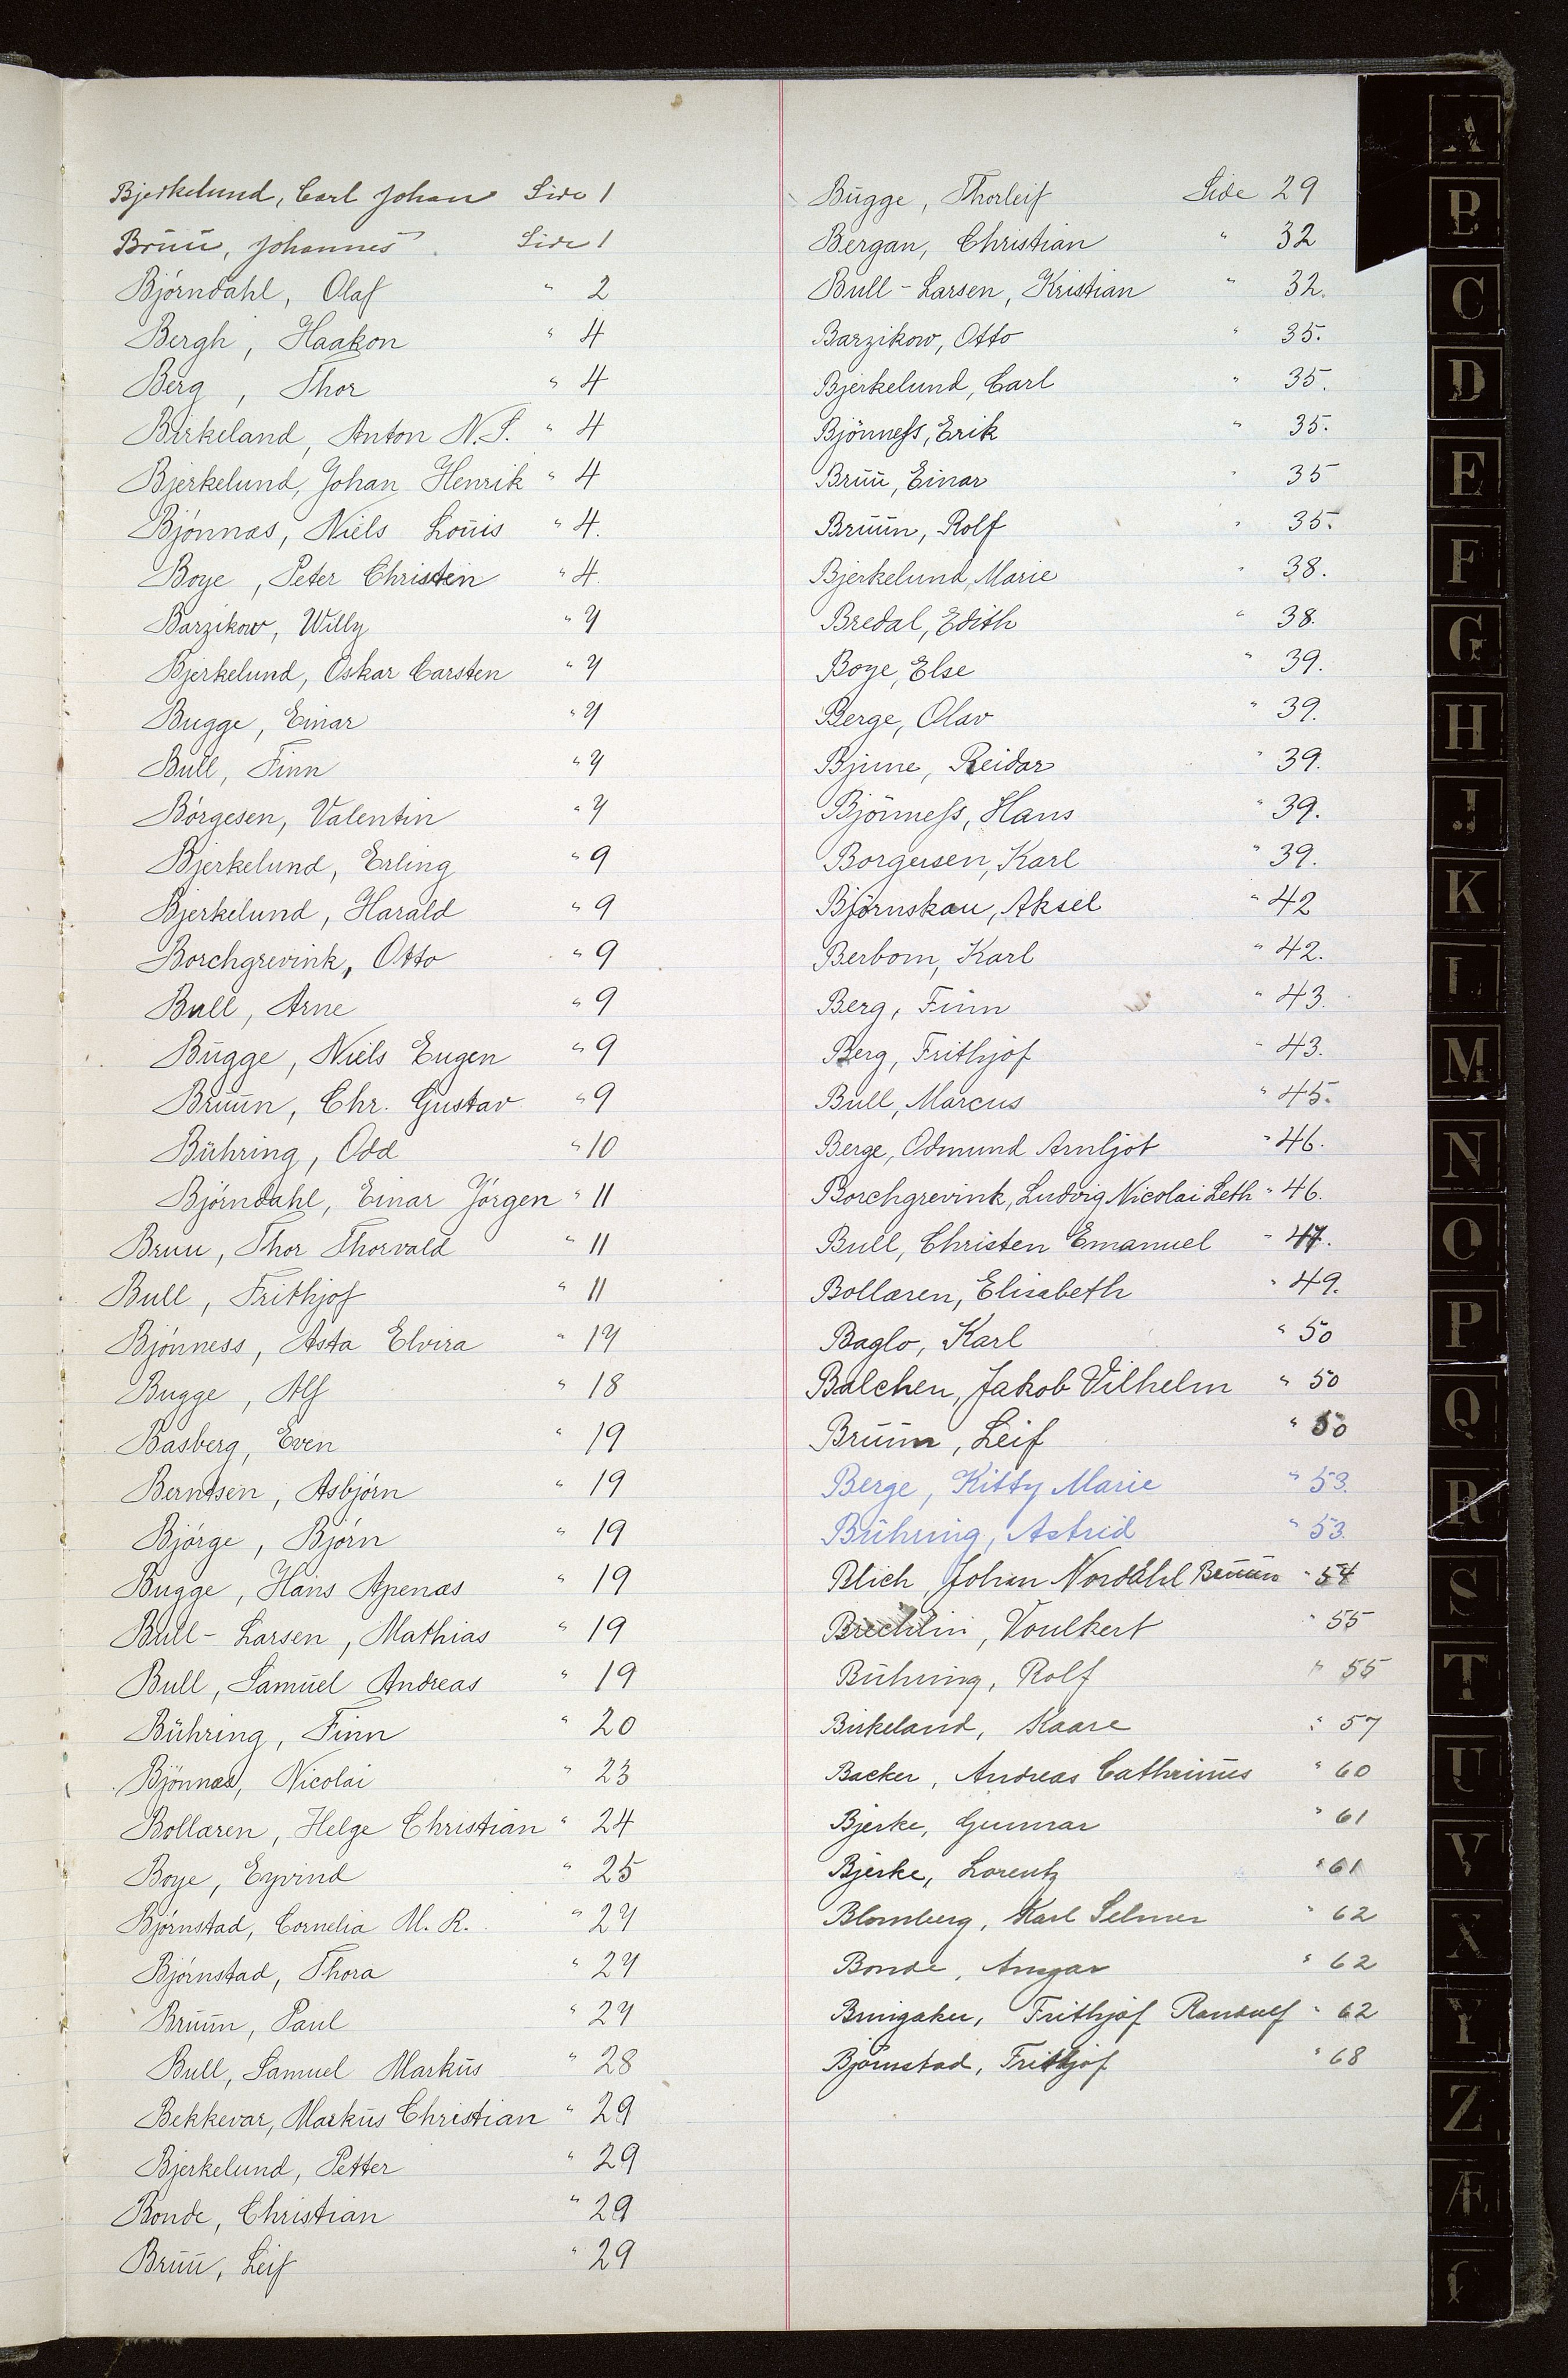 Bjerkelund, Carl Johan Side 1
Bruu, Johannes Side 1
Bjørndahl, Olaf " 2
Bergh, Haakon " 4
Berg, Thor " 4
Birkeland, Anton N. S. " 4
Bjerkelund, Johan Henrik " 4
Bjønnæs, Niels Louis " 4.
Boye, Peter Christein " 4.
Barzikow, Willy " 7
Bjerkelund, Oskar Carsten " 7
Bugge, Einar " 7
Bull, Finn " 7
Børgesen, Valentin " 7
Bjerkelund, Erling " 9
Bjerkelund, Harald " 9
Borchgrevink, Otto " 9
Bull, Arne " 9
Bugge, Niels Eugen " 9
Bruun, Chr. Gustav " 9
Bühring, Odd " 10
Bjørndahl, Einar Jørgen " 11
Bruu, Thor Thorvald " 11
Bull, Frithjof " 11
Bjønness, Asta Elvira " 17
Bugge, Alf " 18
Basberg, Even " 19
Berntsen, Asbjørn " 19
Bjørge, Bjørn " 19
Bugge, Hans Apenæs " 19
Bull-Larsen, Mathias " 19
Bull, Samuel Andreas " 19
Bühring, Finn " 20
Bjønnæs, Nicolai " 23
Bollæren, Helge Christian " 24
Boye, Eyvind " 25
Bjørnstad, Cornelia M. R. " 27
Bjørnstad, Thora " 27
Bruun, Paul " 27
Bull, Samuel Markus " 28
Bekkevar, Markus Christian " 29
Bjerkelund, Petter " 29
Bonde, Christian " 29
Bruu, Leif " 29
Bugge, Thorleif Side 29
Bergan, Christian " 32
Bull-Larsen, Kristian " 32.
Barzikow, Otto " 35.
Bjerkelund, Carl " 35.
Bjönness, Erik " 35.
Bruu, Einar " 35
Bruun, Rolf " 35.
Bjerkelund, Marie " 38.
Bredal, Edith " 38.
Boye, Else " 39.
Berge, Olav " 39.
Bjune, Reidar " 39.
Bjönness, Hans " 39.
Borgersen, Karl " 39.
Bjørnskau, Aksel " 42
Berbom, Karl " 42.
Berg, Finn " 43.
Berg, Frithjof " 43.
Bull, Marcus " 45.
Berge, Odmund Arnljot " 46.
Borchgrevink, Ludvig Nicolai Leth " 46.
Bull, Christen Emanuel " 47.
Bollæren, Elisabeth " 49.
Baglo, Karl " 50
Balchen, Jakob Vilhelm " 50
Bruun, Leif " 50
Berge, Kitty Marie " 53.
Bühring, Astrid " 53.
Blich, Johan Nordahl Bruun " 54
Brechlin, Voulkert " 55
Bühring, Rolf " 55
Birkeland, Kaare " 57
Backer, Andreas Cathrinus " 60
Bjerke, Gunnar " 61
Bjerke, Lorentz " 61
Blomberg, Karl Selmer " 62
Bonde, Ansgar " 62
Bringaker, Frithjof Randulf " 62
Bjørnstad, Frithjof " 68
A
B
C
D
E
F
G
H
J
K
L
M
N
O
P
Q
R
S
T
U
V
X
Y
Z
Æ